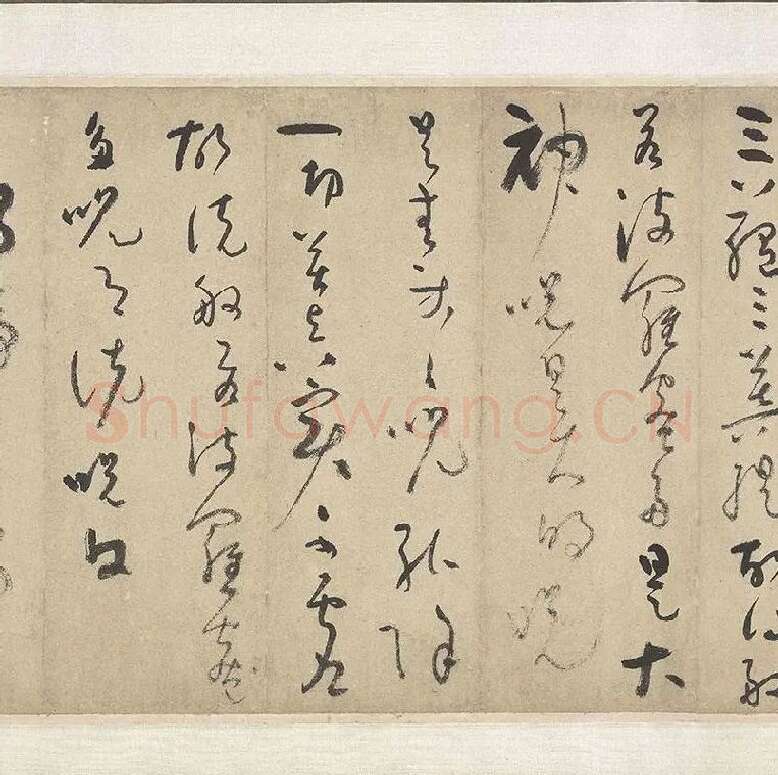 三藐三菩提故知般
若波羅蜜多是大
神咒是大明咒
是無等々咒能除
一切苦真實不虛
故說般若波羅蜜
多咒即說咒曰
Shufawang.CN